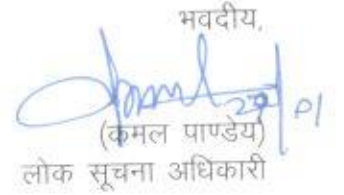 भवदीय,
29/01
(कमल पाण्डेय)
लोक सूचना अधिकारी